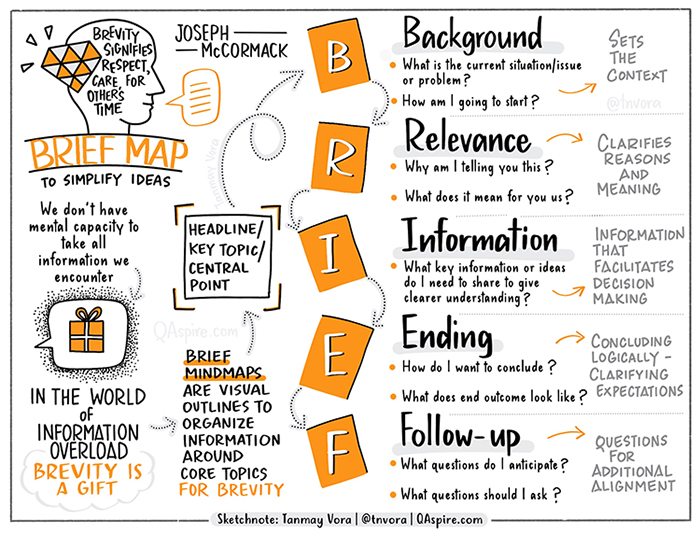 BREVITY
SIGNIFIES
RESPECT,
CARE, FOR
OTHER'S
TIME
JOSEPH
McCORMACK
BRIEF MAP
TO SIMPLIFY IDEAS
We don't have
mental capacity to
take all
information we
encounter
IN THE WORLD
of
INFORMATION
OVERLOAD
BREVITY IS
A GIFT
HEADLINE/
KEY TOPIC/
CENTRAL
POINT
Tanmay Vora
QAspire.com
BRIEF
MINDMAPS
ARE VISUAL
OUTLINES TO
ORGANIZE
INFORMATION
AROUND
CORE TOPICS
FOR BREVITY
B
Background
What is the current situation/issue
or problem?
How am I going to start?
SETS
THE
CONTEXT
@tnvora
R
Relevance
Why am I telling you this?
What does it mean for you us?
CLARIFIES
REASONS
AND
MEANING
I
Information
What key information or ideas
do I need to share to give
clearer understanding?
INFORMATION
THAT
FACILITATES
DECISION
MAKING
E
Ending
How do I want to conclude?
What does end outcome look like?
CONCLUDING
LOGICALLY -
CLARIFYING
EXPECTATIONS
F
Follow-up
What questions do I anticipate?
What questions should I ask?
QUESTIONS
FOR
ADDITIONAL
ALIGNMENT
Sketchnote: Tanmay Vora | @tnvora | QAspire.com